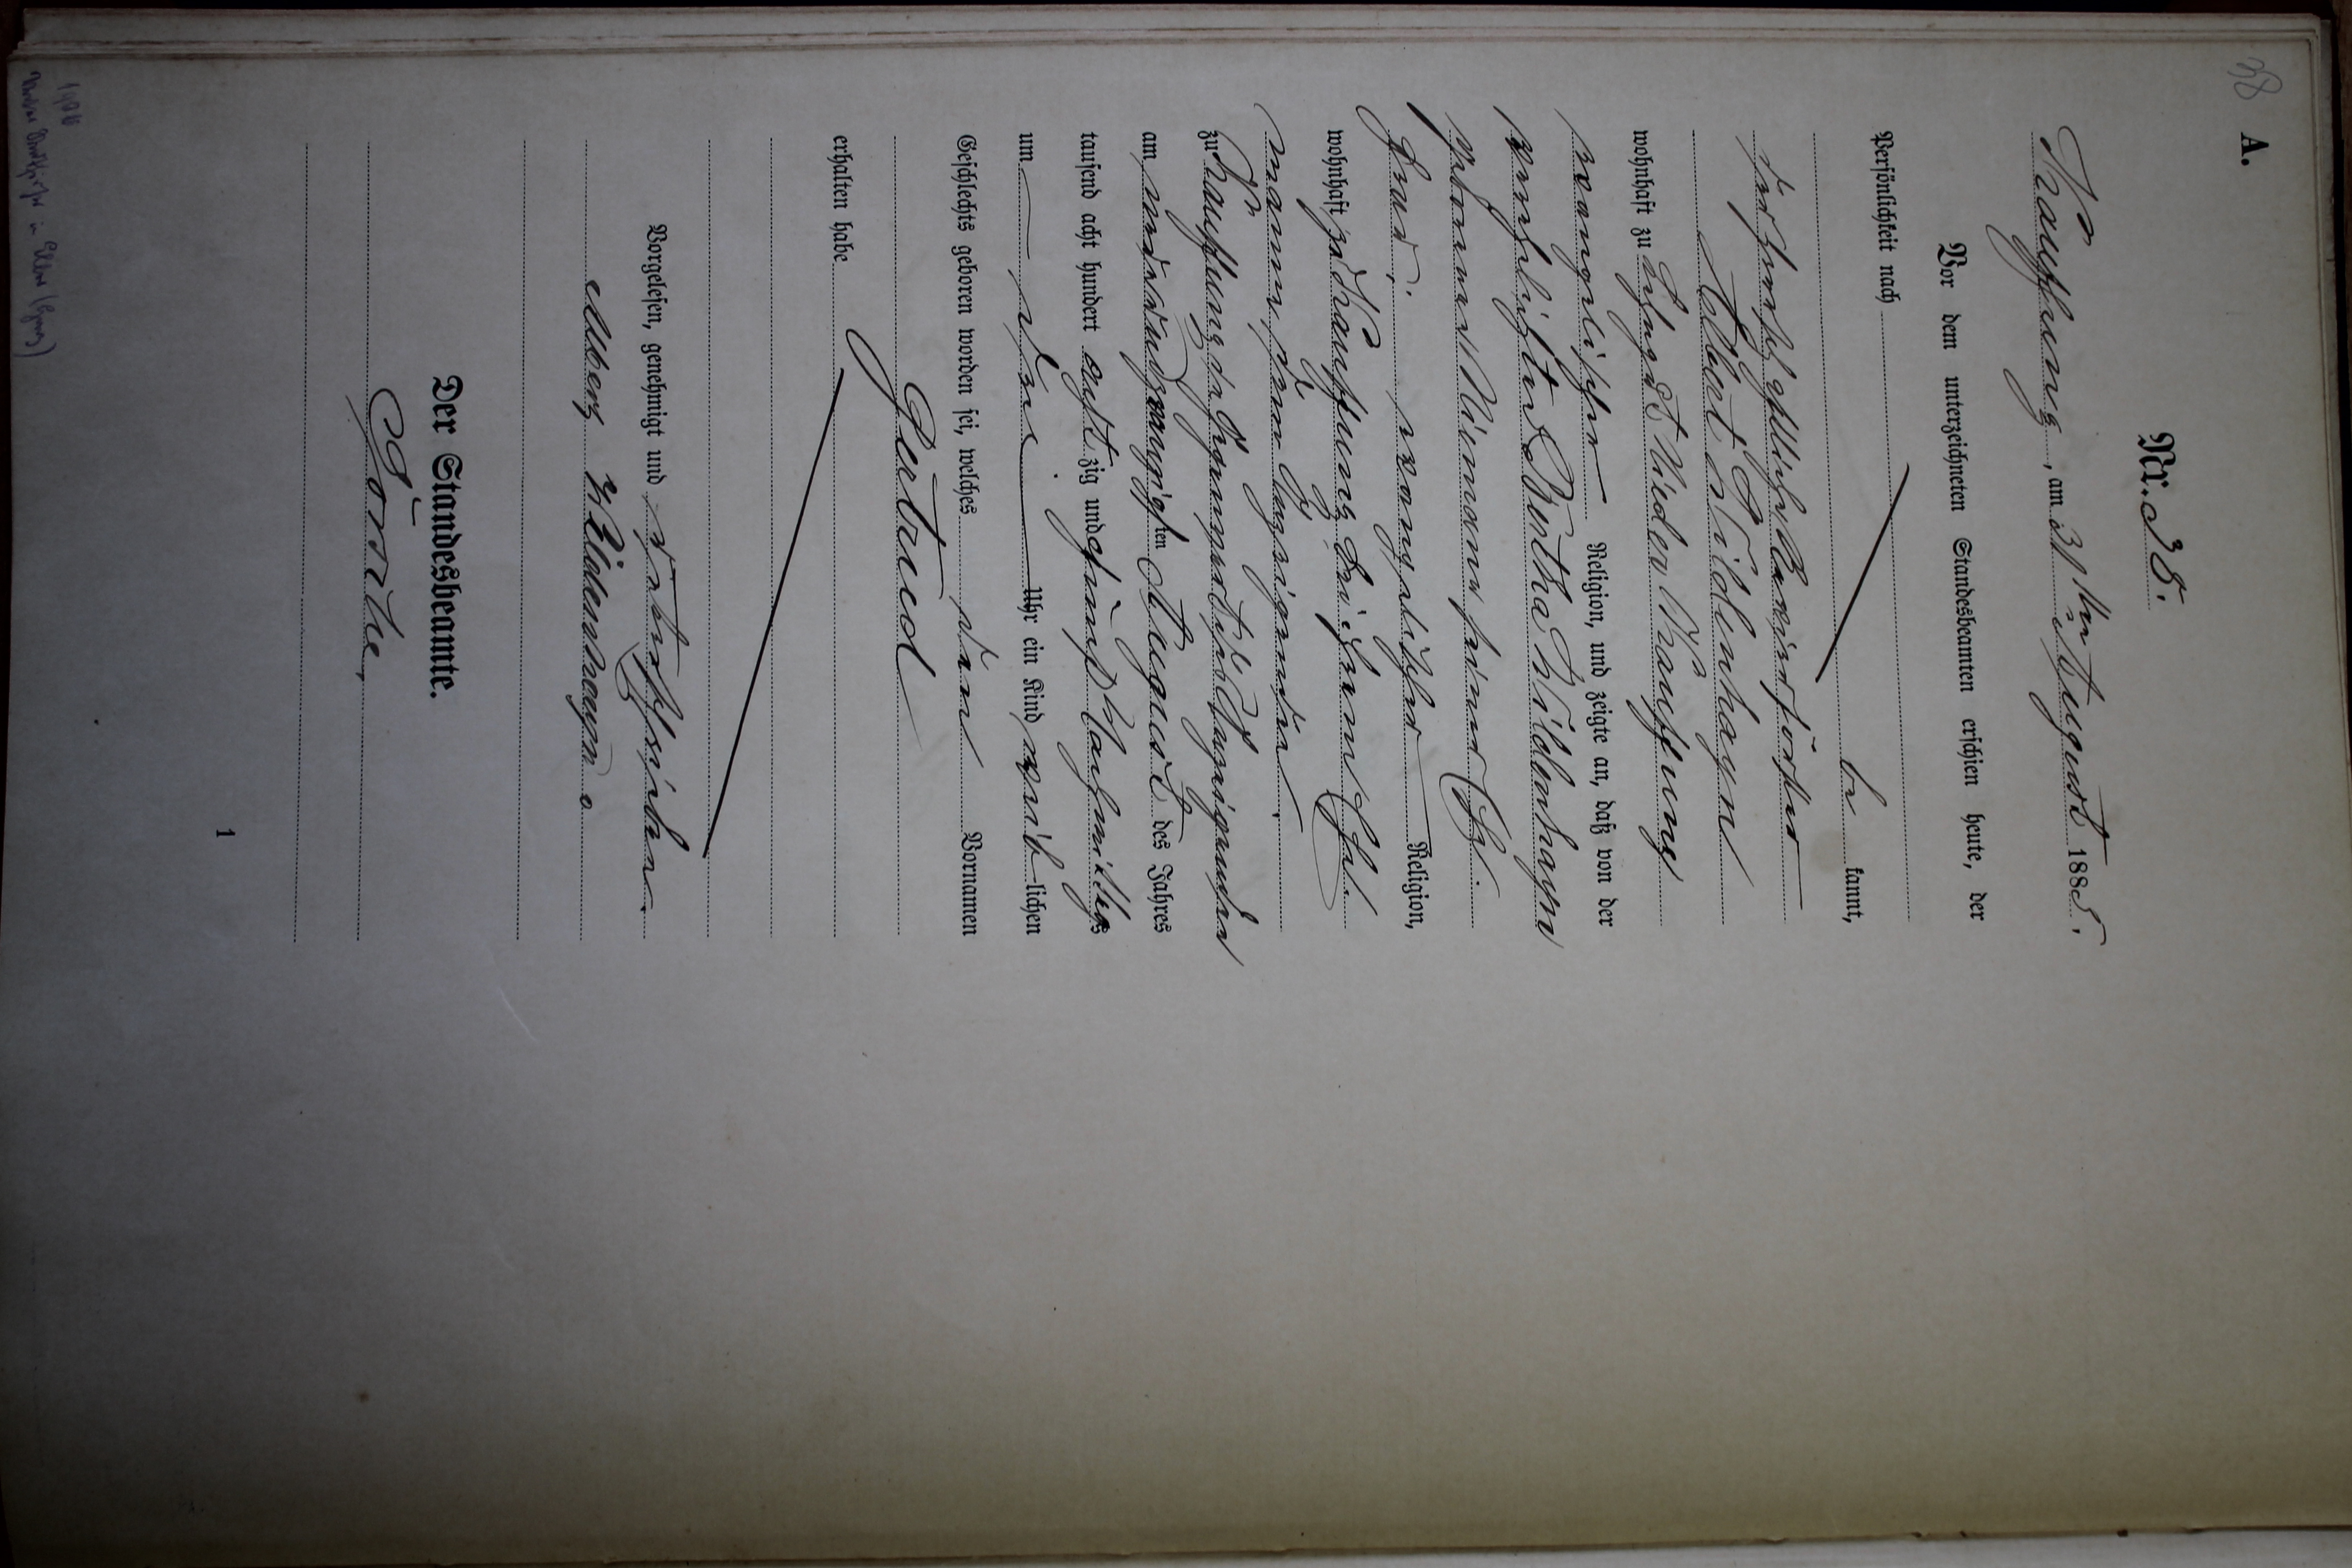 38
A.
Nr. 38.
Kauffung, am 31ten August 1885.
Vor dem unterzeichneten Standesbeamten erschien heute, der
Persönlichkeit nach
be kannt,
der herrschaftliche Revierförster
Albert Wildenhayn
wohnhaft zu Lest Nieder Kauffung
evangelischer Religion, und zeigte an, daß von der
verehelichten Bertha Wildenhayn
geborenen Niemann seiner Ehe-
frau, evangelischer Religion,
wohnhaft zu Kauffung bei ihrem Ehe-
manne, dem Anzeigenden,
zu Kauffung in der Wohnung des Anzeigenden
am zwanzigsten August des Jahres
tausend acht hundert acht zig und fünf Nachmittags
um drei Uhr ein Kind weib lichen
Geschlechts geboren worden sei, welches den Vornamen
Gertrud
erhalten habe
Vorgelesen, genehmigt und unterschrieben
Albert Wildenhayn.
Der Standesbeamte.
1
1906